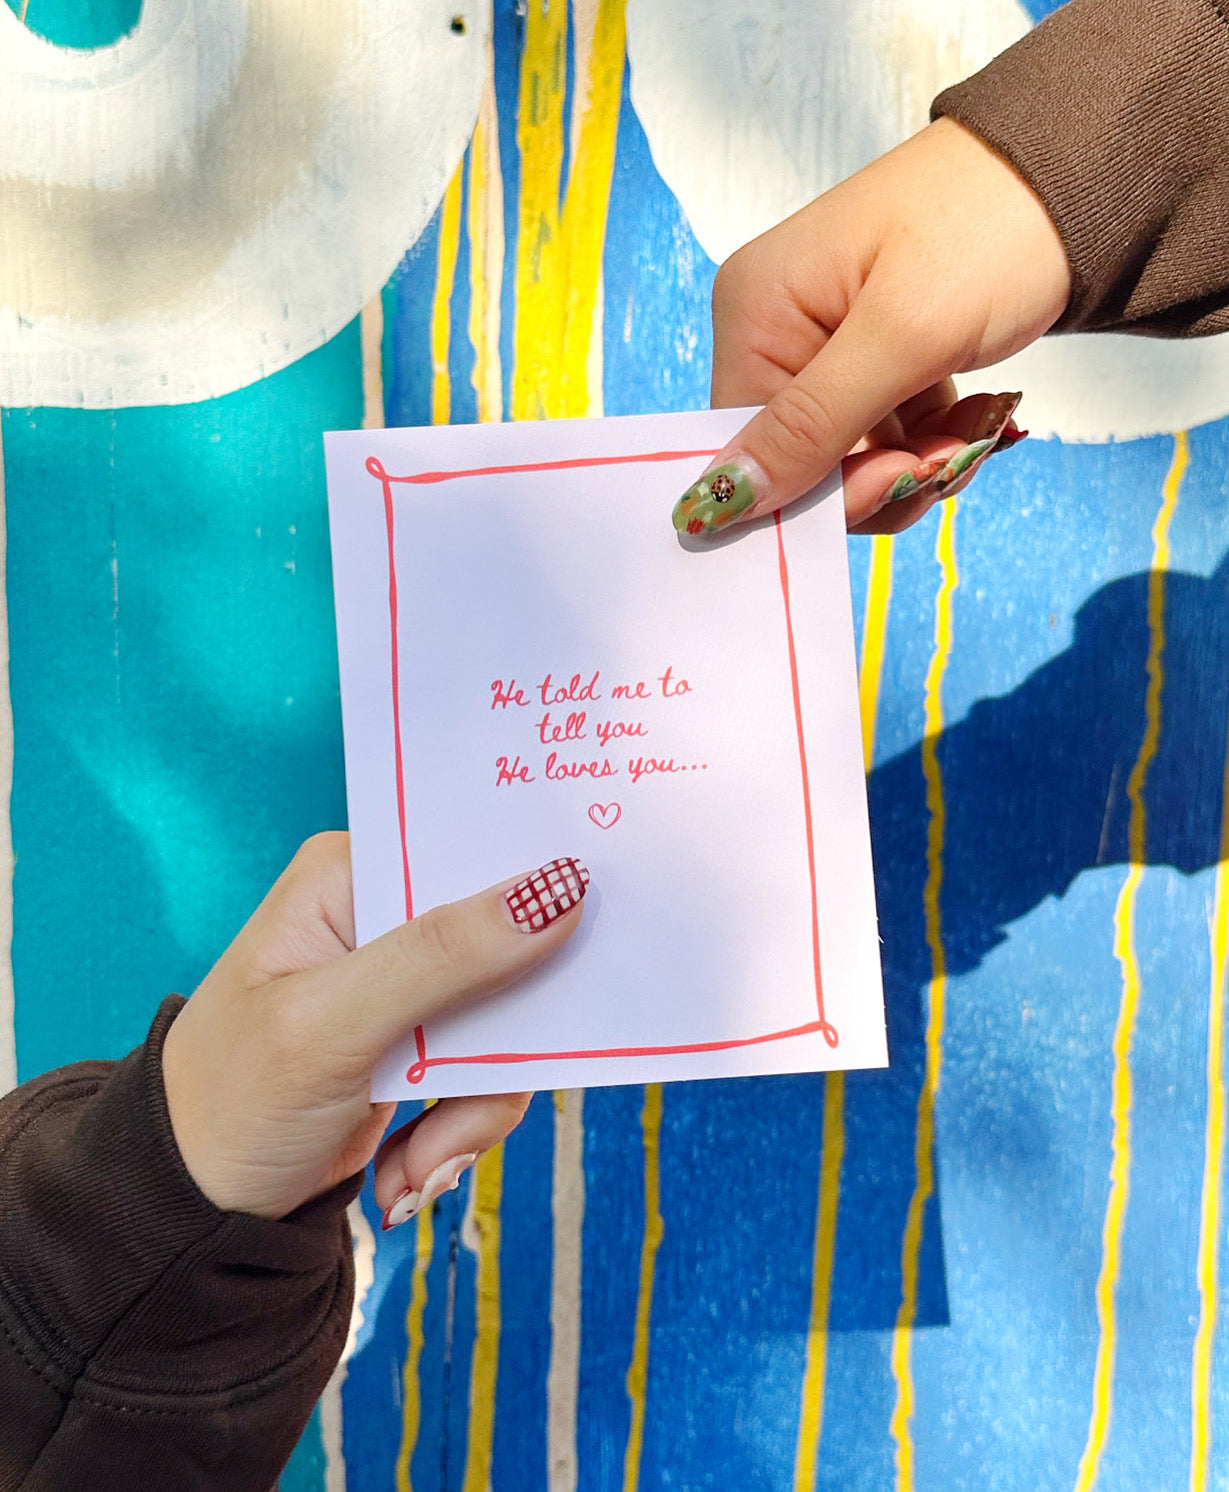 He told me to
tell you
He loves you...